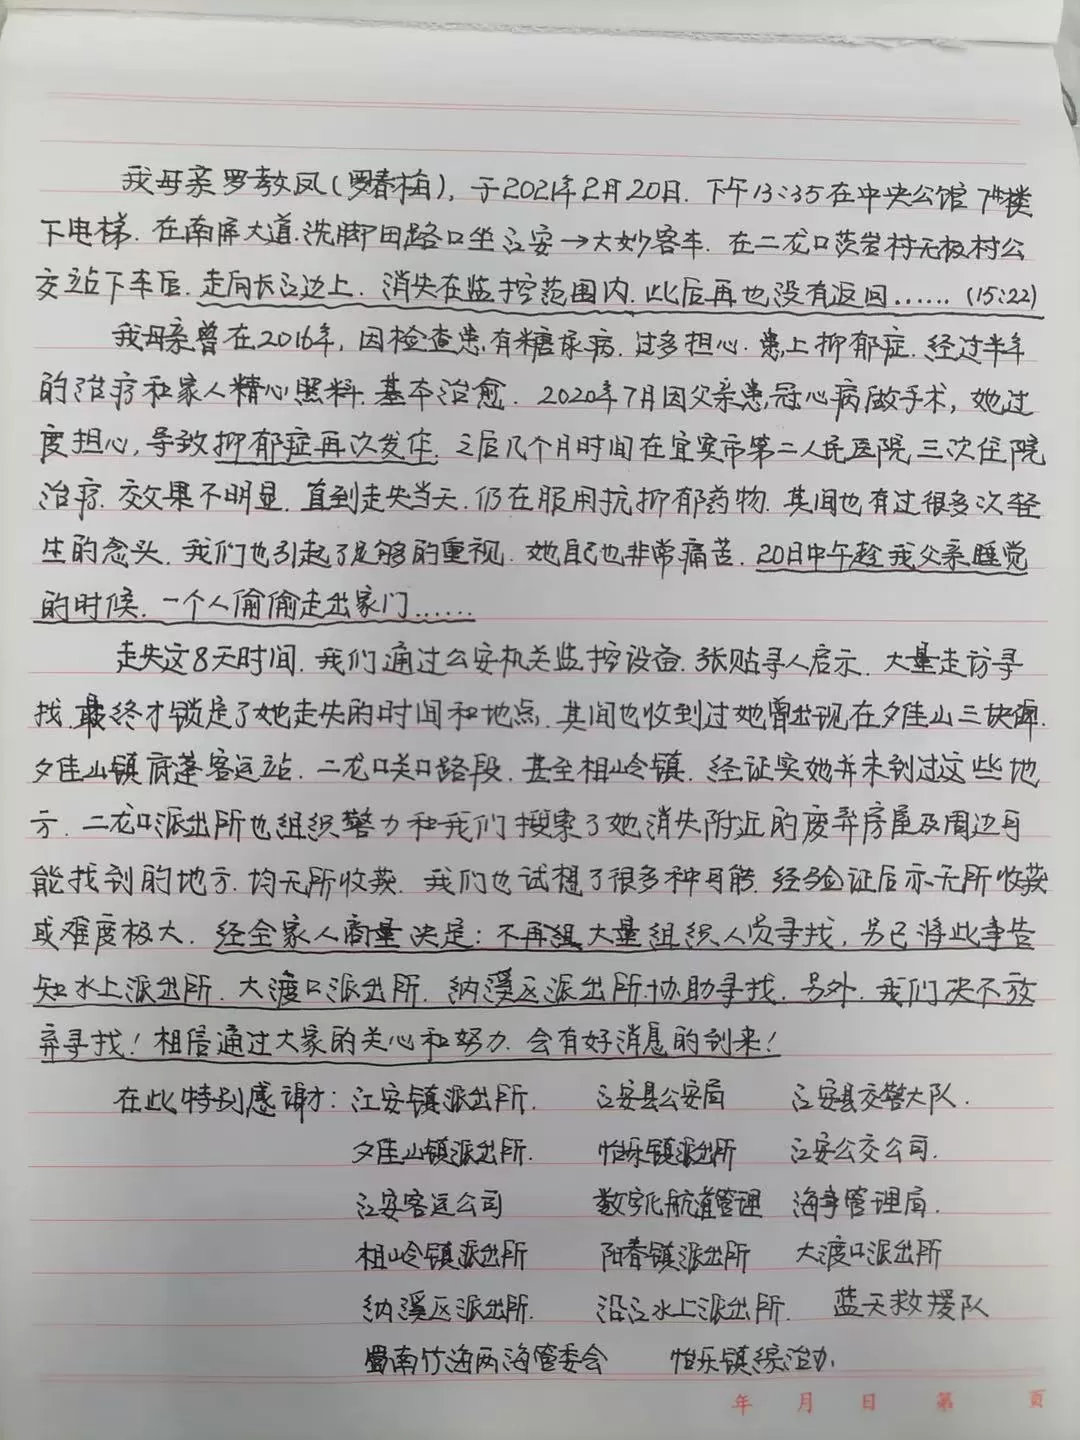 我母亲罗教凤(罗春梅),于2021年2月20日.下午13:35在中央公馆7#楼
下电梯.在南屏大道.洗脚田路口坐江安→大妙客车.在二龙口茨岩村无极村公
交站下车后.走向长江边上.消失在监控范围内.此后再也没有返回……(15:22)
我母亲曾在2016年,因检查患有糖尿病.过多担心.患上抑郁症.经过半年
的治疗和家人精心照料.基本治愈.2020年7月因父亲患冠心病做手术,她过
度担心,导致抑郁症再次发作.之后几个月时间在宜宾市第二人民医院三次住院
治疗.效果不明显.直到走失当天.仍在服用抗抑郁药物.其间也有过很多次轻
生的念头.我们也引起了足够的重视.她自己也非常痛苦.20日中午趁我父亲睡觉
的时候.一个人偷偷走出家门……
走失这8天时间.我们通过公安机关监控设备.张贴寻人启示.大量走访寻
找.最终才锁定了她走失的时间和地点.其间也收到过她曾出现在夕佳山三块
夕佳山镇底蓬客运站.二龙口关口路段.甚至相岭镇.经证实她并未到过这些地
方.二龙口派出所也组织警力和我们搜索了她消失附近的废弃房屋及周边可
能找到的地方.均无所收获.我们也试想了很多种可能.经验证后亦无所收获
或难度极大.经全家人商量决定:不再组大量组织人员寻找,另已将此事告
知水上派出所.大渡口派出所.纳溪区派出所协助寻找.另外.我们决不放
弃寻找!相信通过大家的关心和努力.会有好消息的到来!
在此特别感谢:江安镇派出所. 江安县公安局 江安县交警大队.
夕佳山镇派出所. 怡乐镇派出所 江安公交公司.
江安客运公司 数字化航道管理 海事管理局.
相岭镇派出所 阳春镇派出所 大渡口派出所
纳溪区派出所. 沿江水上派出所. 蓝天救援队
蜀南竹海两海管委会 怡乐镇综治办.
年 月 日 第 页